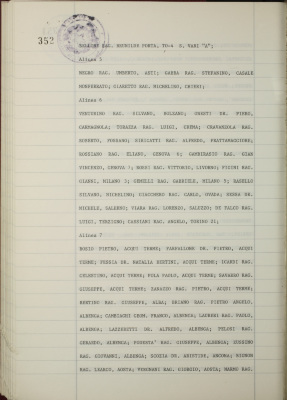 352
BELLINI RAG. MAURO DR PORTA, TO-4 S, VARI "A";
Alinea 5
NEGRO RAG. UMBERTO, ASTI; GANNA RAG. STEFANINO, CASALE
MONFERRATO; GIARETTO RAG. MICHELINO, CHIERI;
Alinea 6
VENTURINO RAG. SILVANO, BOLZANO; ONESTI DR. PIERO,
CARMAGNOLA; TORAZZA RAG. LUIGI, CREMA; CRAVANZOLA RAG.
ROBERTO, FOSSANO; SIRIGATTI RAG. ALFREDO, FRATTAMAGGIORE;
ROSSIANO RAG. ELIANO, GENOVA 6; GAMBIRASIO RAG. GIAN
VINCENZO, GENOVA 7; ROSSI RAG. VITTORIO, LIVORNO; PICINI RAG.
GIANNI, MILANO 2; GEMELLI RAG. GABRIELE, MILANO 5; BASELLI
SILVANO, NICHELINO; GIACOBBO RAG. CARLO, OVADA; SERRA DR.
MICHELE, SALERNO; PIARA RAG. LORENZO, SALUZZO; DE FALCO RAG.
LUIGI, TERZIGNO; CASSIANI RAG. ANGELO, TORINO 21;
Alinea 7
BOSIO PIETRO, ACQUI TERME; PARFALLONE DR. PIETRO, ACQUI
TERME; PERNIA DR. NATALIA AGOTINI, ACQUI TERME; ICARDI RAG.
CELESTINO, ACQUI TERME; POLA PAOLO, ACQUI TERME; SARASSO RAG.
GIUSEPPE, ACQUI TERME; SARAZZO RAG. PIETRO, ACQUI TERME;
BERTINO RAG. GIUSEPPE, ALBA; BRIANO RAG. PIETRO ANGELO,
ALBENGA; CAMPIAGNI GEOM. FRANCO, ALBENGA; LAURERI RAG. PAOLO,
ALBENGA; LAZZERETTI DR. ALFREDO, ALBENGA; TELFRI RAG.
GERARDO, ALBENGA; FERRATA' RAG. GIUSEPPE, ALBENGA; ZUNNINO
RAG. GIOVANNI, ALBENGA; SCOZIA DR. ARISTIDE, ANCONA; BIGNON
RAG. LEANCO, AOSTA; VENURANI RAG. GIORGIO, AOSTA; MARMO RAG.